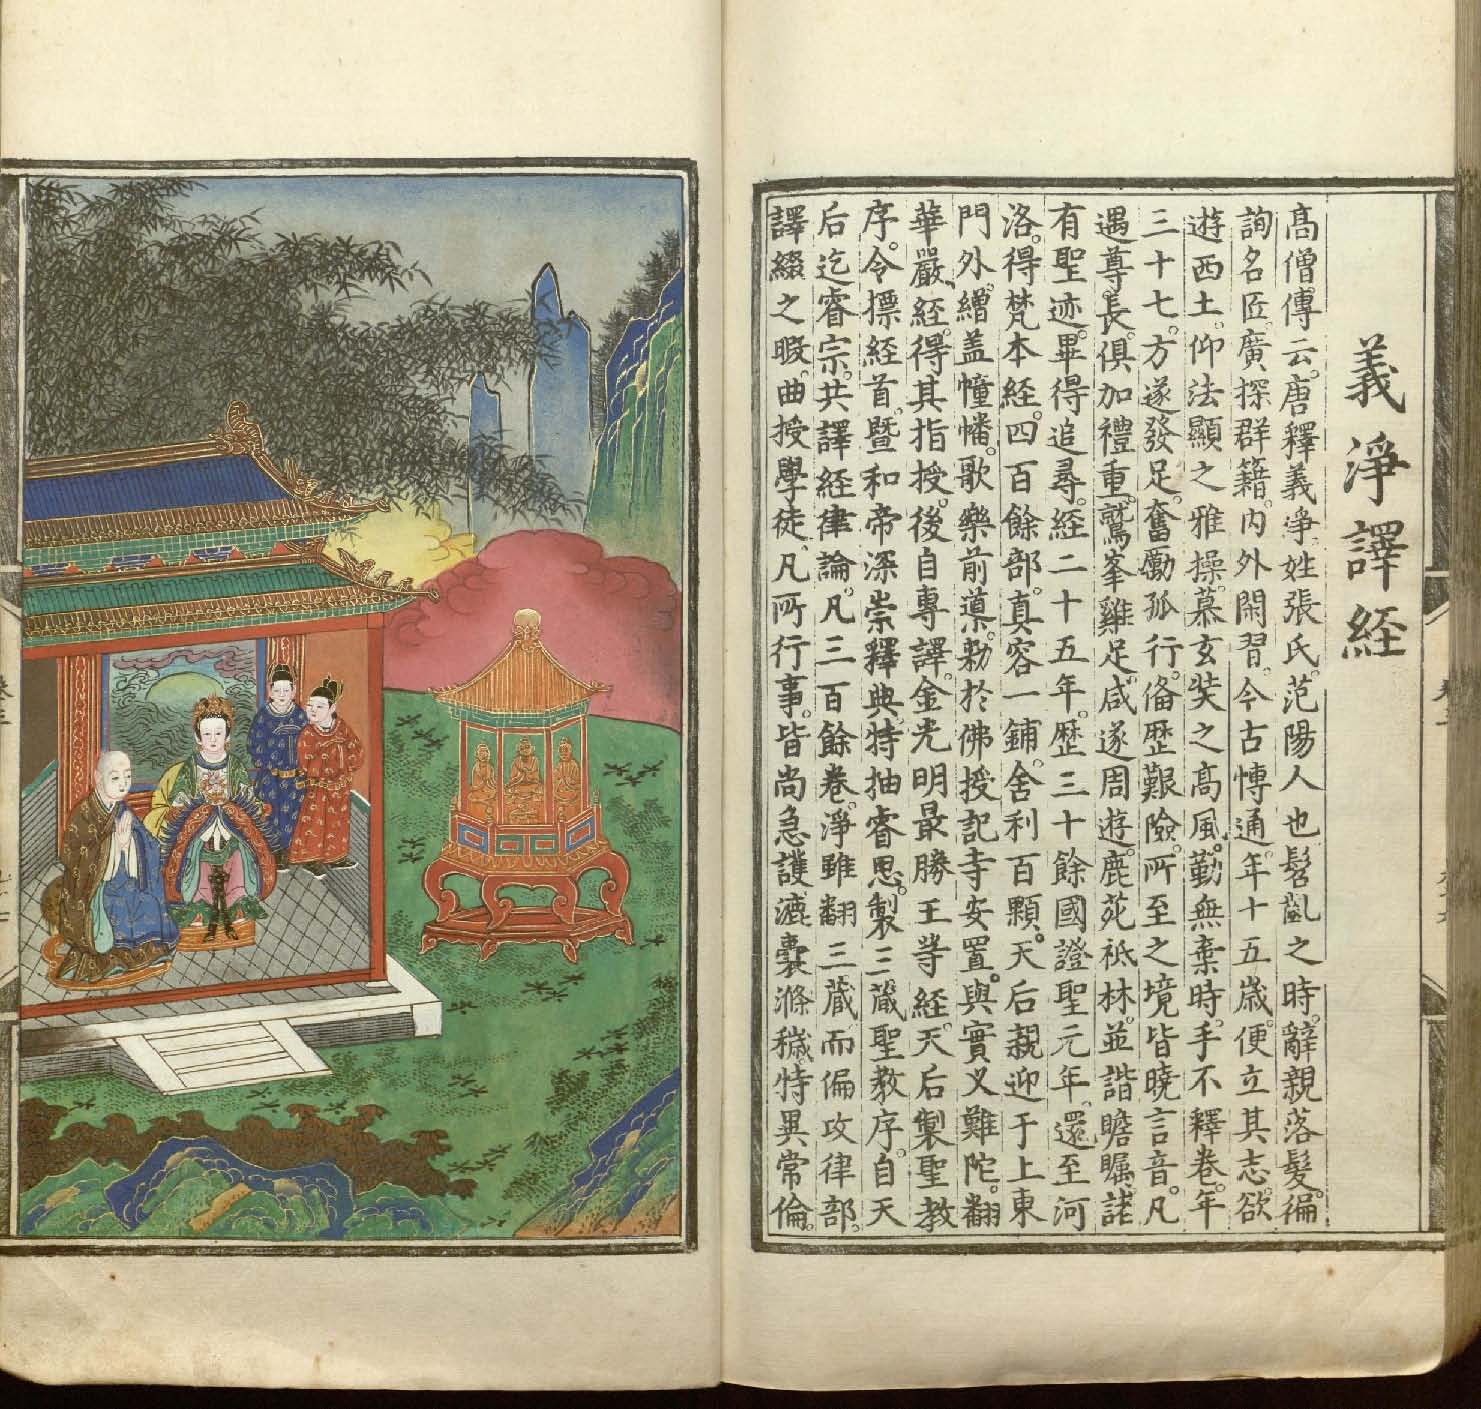 義淨譯經
高僧傳云。唐釋義淨。姓張氏。范陽人也。髫齔之時。辭親落髮。徧
詢名匠。廣探群籍。內外閑習。今古愽通。年十五歲。便立其志。欲
遊西土。仰法顯之雅操。慕玄奘之高風。勤無棄時。手不釋卷。年
三十七。方遂發足。奮勵孤行。俻歷艱險。所至之境。皆曉言音。凡
遇尊長。俱加禮重。鷲峯雞足。咸遂周遊。鹿苑祇林。並諧瞻矚。諸
有聖迹。畢得追尋。經二十五年。歷三十餘國。證聖元年。還至河
洛。得梵本經。四百餘部。真容一鋪。舍利百顆。天后親迎于上東
門外。繒盖幢幡。歌樂前導。勑於佛授記寺安置。與實叉難陀。翻
華嚴經。得其指授。後自專譯。金光明最勝王等經。天后製聖教
序。令摽經首。暨和帝深崇釋典。特抽睿思。製三藏聖教序。自天
后迄睿宗。共譯經律論。凡三百餘卷。淨雖翻三藏。而偏攻律部。
譯綴之暇。曲授學徒。凡所行事。皆尚急護。漉囊滌穢。特異常倫。